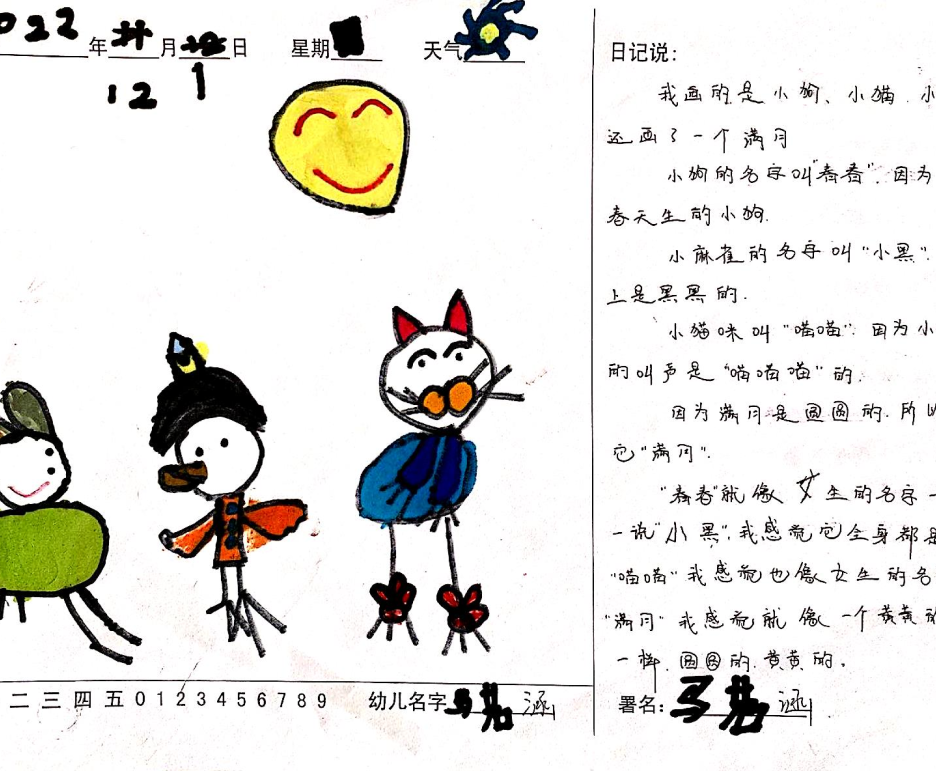 2022年 月 日 星期 天气
12 1
日记说:
我画的是小狗、小猫.小
还画了一个满月
小狗的名字叫"春春".因为
春天生的小狗.
小麻雀的名字叫"小黑".
上是黑黑的.
小猫咪叫"喵喵".因为小
的叫声是"喵喵喵"的.
因为满月是圆圆的.所以
它"满月".
"春春"就像女生的名字一
一说"小黑".我感觉它全身都是
"喵喵"我感觉也像女生的名
"满月"我感觉就像一个黄黄的
一样.圆圆的.黄黄的。
二三四五0123456789 幼儿名字 涵
署名: 涵